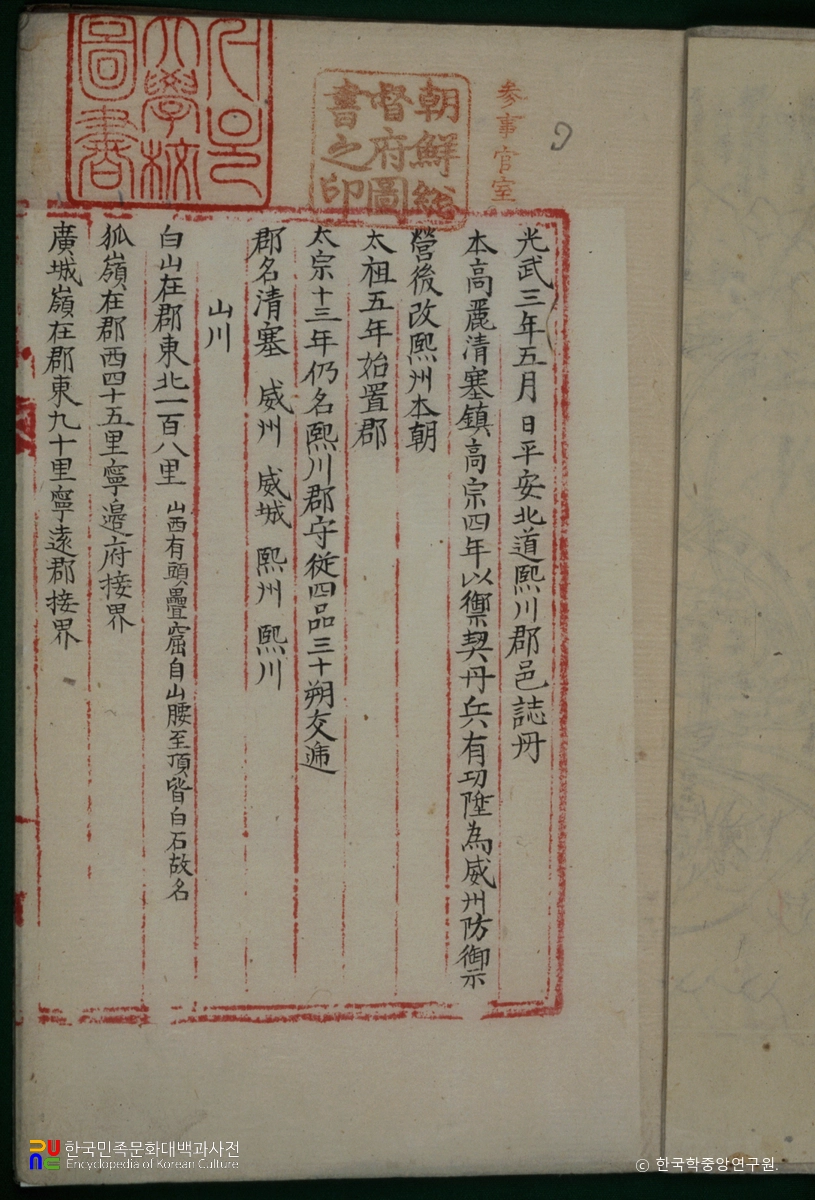 光武三年五月 日平安北道熙川郡邑誌册
本高麗清塞鎮高宗四年以禦契丹兵有功陞為威州防禦
營後改熙州本朝
太祖五年始置郡
太宗十三年仍名熙川郡守從四品三十朔交遞
郡名清塞 威州 威城 熙州 熙川
山川
白山在郡東北一百八里 山西有頭疊窟自山腰至頂皆白石故名
狐嶺在郡西四十五里寧邊府接界
廣城嶺在郡東九十里寧遠郡接界
参事官室
朝鮮總
督府圖
書之印
大學校
圖書
한국민족문화대백과사전
Encyclopedia of Korean Culture
© 한국학중앙연구원.